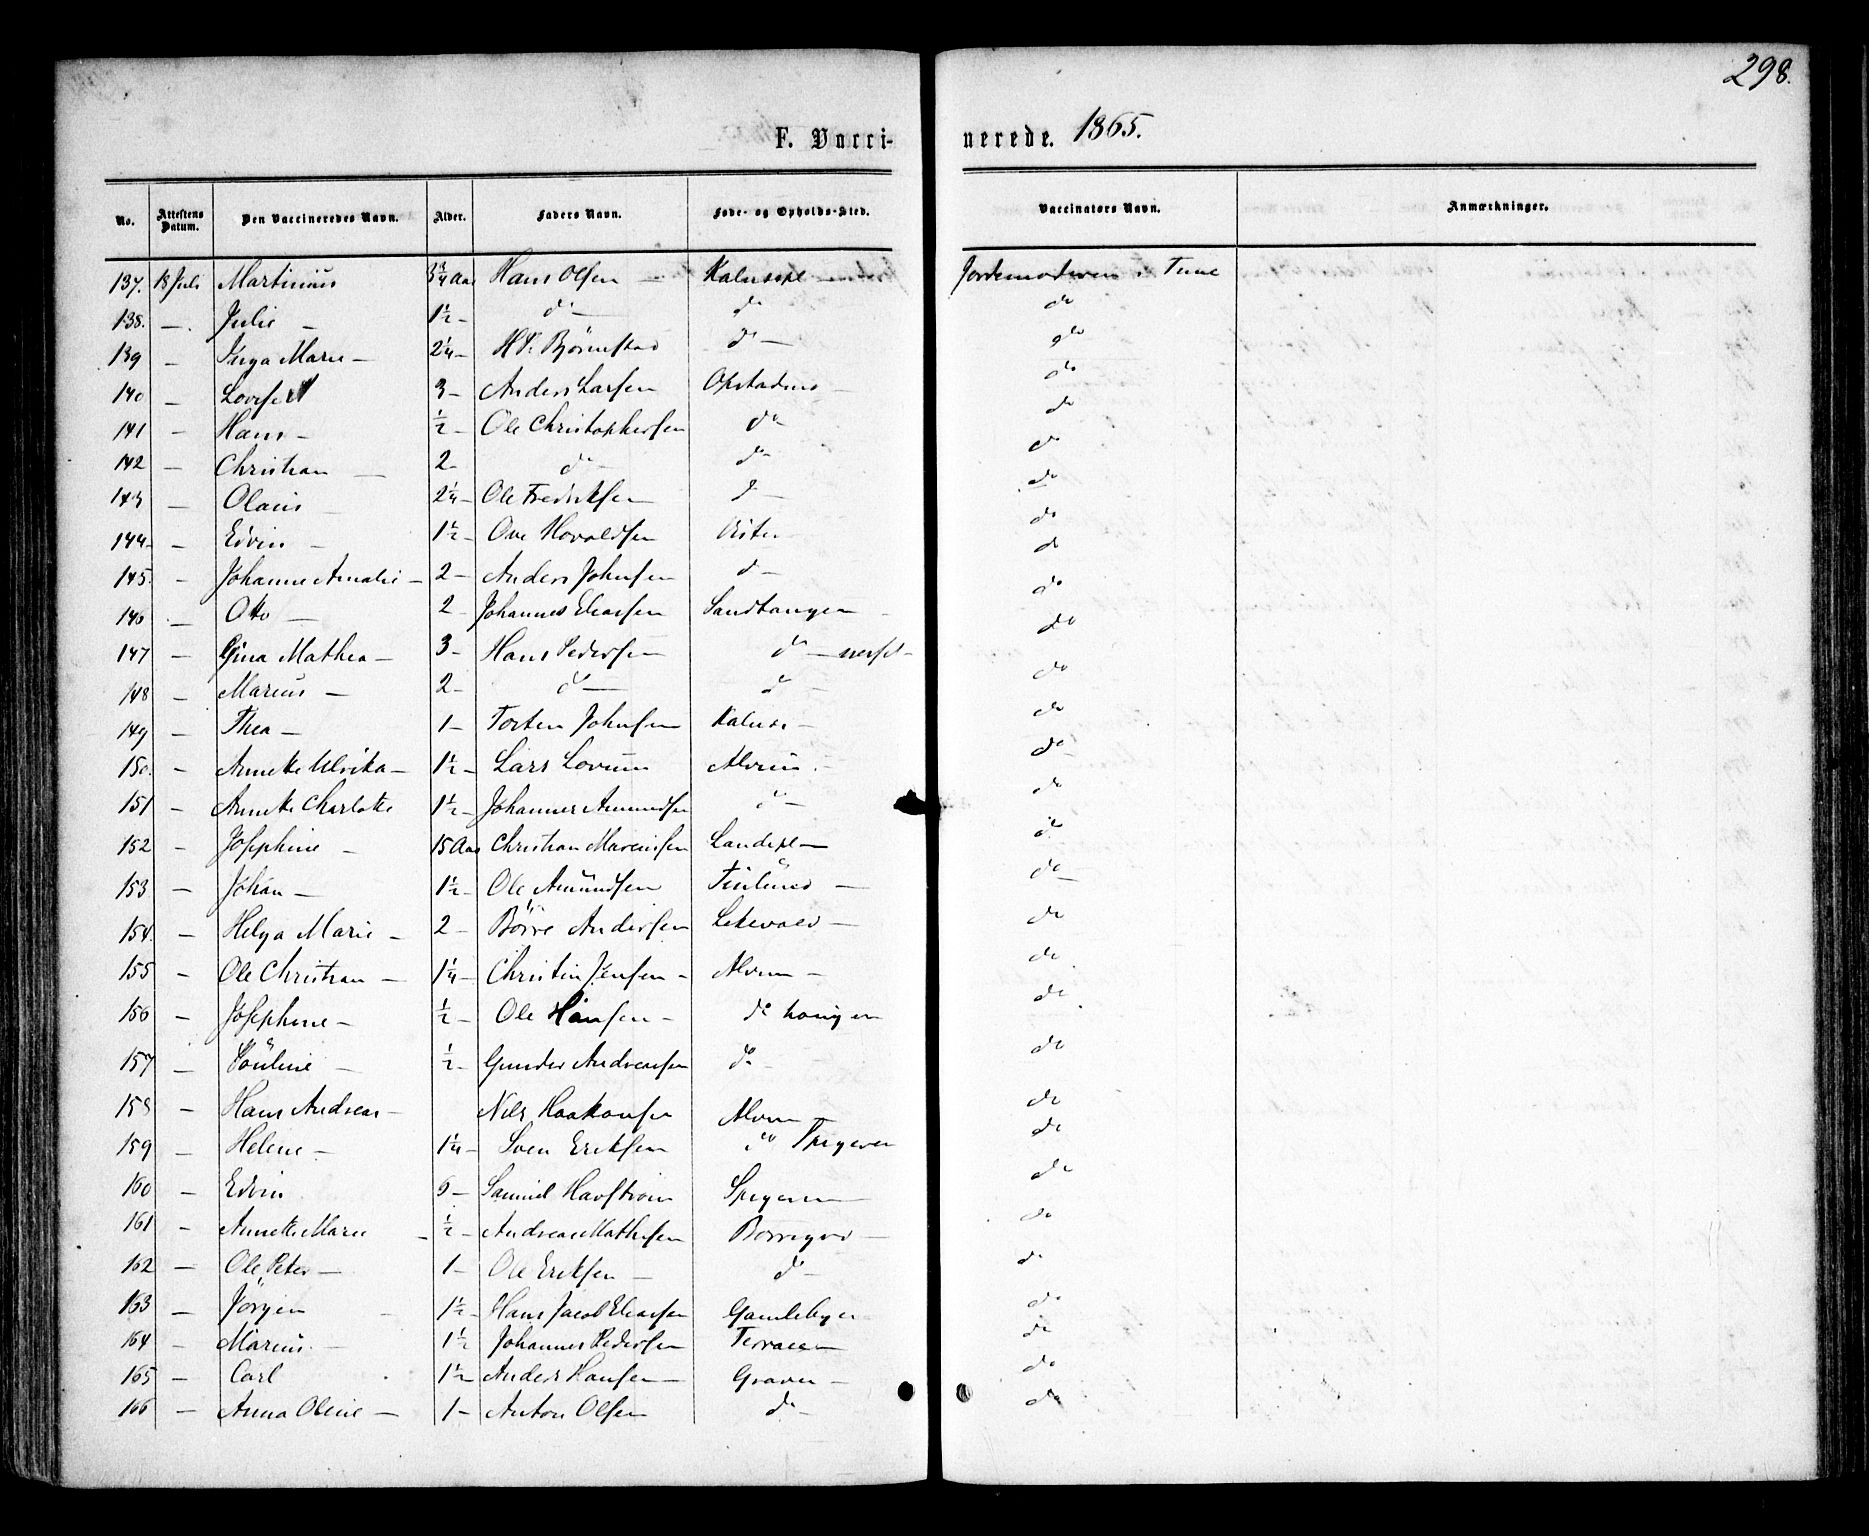 298.
F. Vacci-nerede. 1865.
No. Attestens Datum. Den Vaccineredes Navn. Alder. Faders Navn. Føde- og Opholds-Sted. Vaccinators Navn. Anmærkninger.
137. 18 Juli Martinius 3 3/4 Aar Hans Olsen — Jordemoderen i Tune
138. — Julie — 1 1/2 — do — do do
139 — Inga Marie — 2 1/4 — Bjørnstad do — do
140 — 3 — Anders Larsen do
141 — Hans — 1/2 — Ole Christophersen do do
142 — Christian — 2 — do — do do
143 — Olaus — 2 1/4 — Ole Fredriksen do — do
144 — Edvin — 1 1/2 — Ove Hovaldsen do
145. — Johanne Amalie — 2 — Anders Johnsen do — do
146 — Otto — 2 — Johannes Eliassen Sandtangen — do
147 — Gina Mathea — 3 — Hans Pedersen do — do
148 — Marius — 2 — do — do — do
149 — Thea — 1 — Torsten Johnsen — do
150. — Annette Ulrika — 1 1/2 — Lars Lovum Alvim — do
151 — Annette Charlotte 1 1/2 — Johannes Amundsen do — do
152 — Josephine — 15 Aar Christian Marensen do
153 — Johan — 1 1/2 — Ole Amundsen — do
154. — Helga Marie — 2 — Börre Andersen Lekevold — do
155 — Ole Christian — 1 1/4 — Christin Jensen — Alvim — do
156 — Josephine — 1/2 — Ole Hansen — do do
157 — Pauline — 1/2 — Gunder Andreassen do — do
158 — Hans Andreas — Nils Haakonsen Alvim do
159 — Helene — 1 1/4 — Sven Eriksen do Spigeren do
160 — Edvin — Samuel Spigeren — do
161 — Annette Marie — 1/2 — Andreas Mathisen Borregard — do
162 — Ole Peter — 1 — Ole Eriksen — do — do
163 — Jörgen — 1 1/2 — Hans Jacob Eliassen Gamlebyen do
164 — Marius — 1 1/2 Johannes Pedersen Terrasen do
165 — Carl 1 1/2 — Anders Hansen — Graver — do
166 — Anna Oline — 1 — Anton Olsen do — do